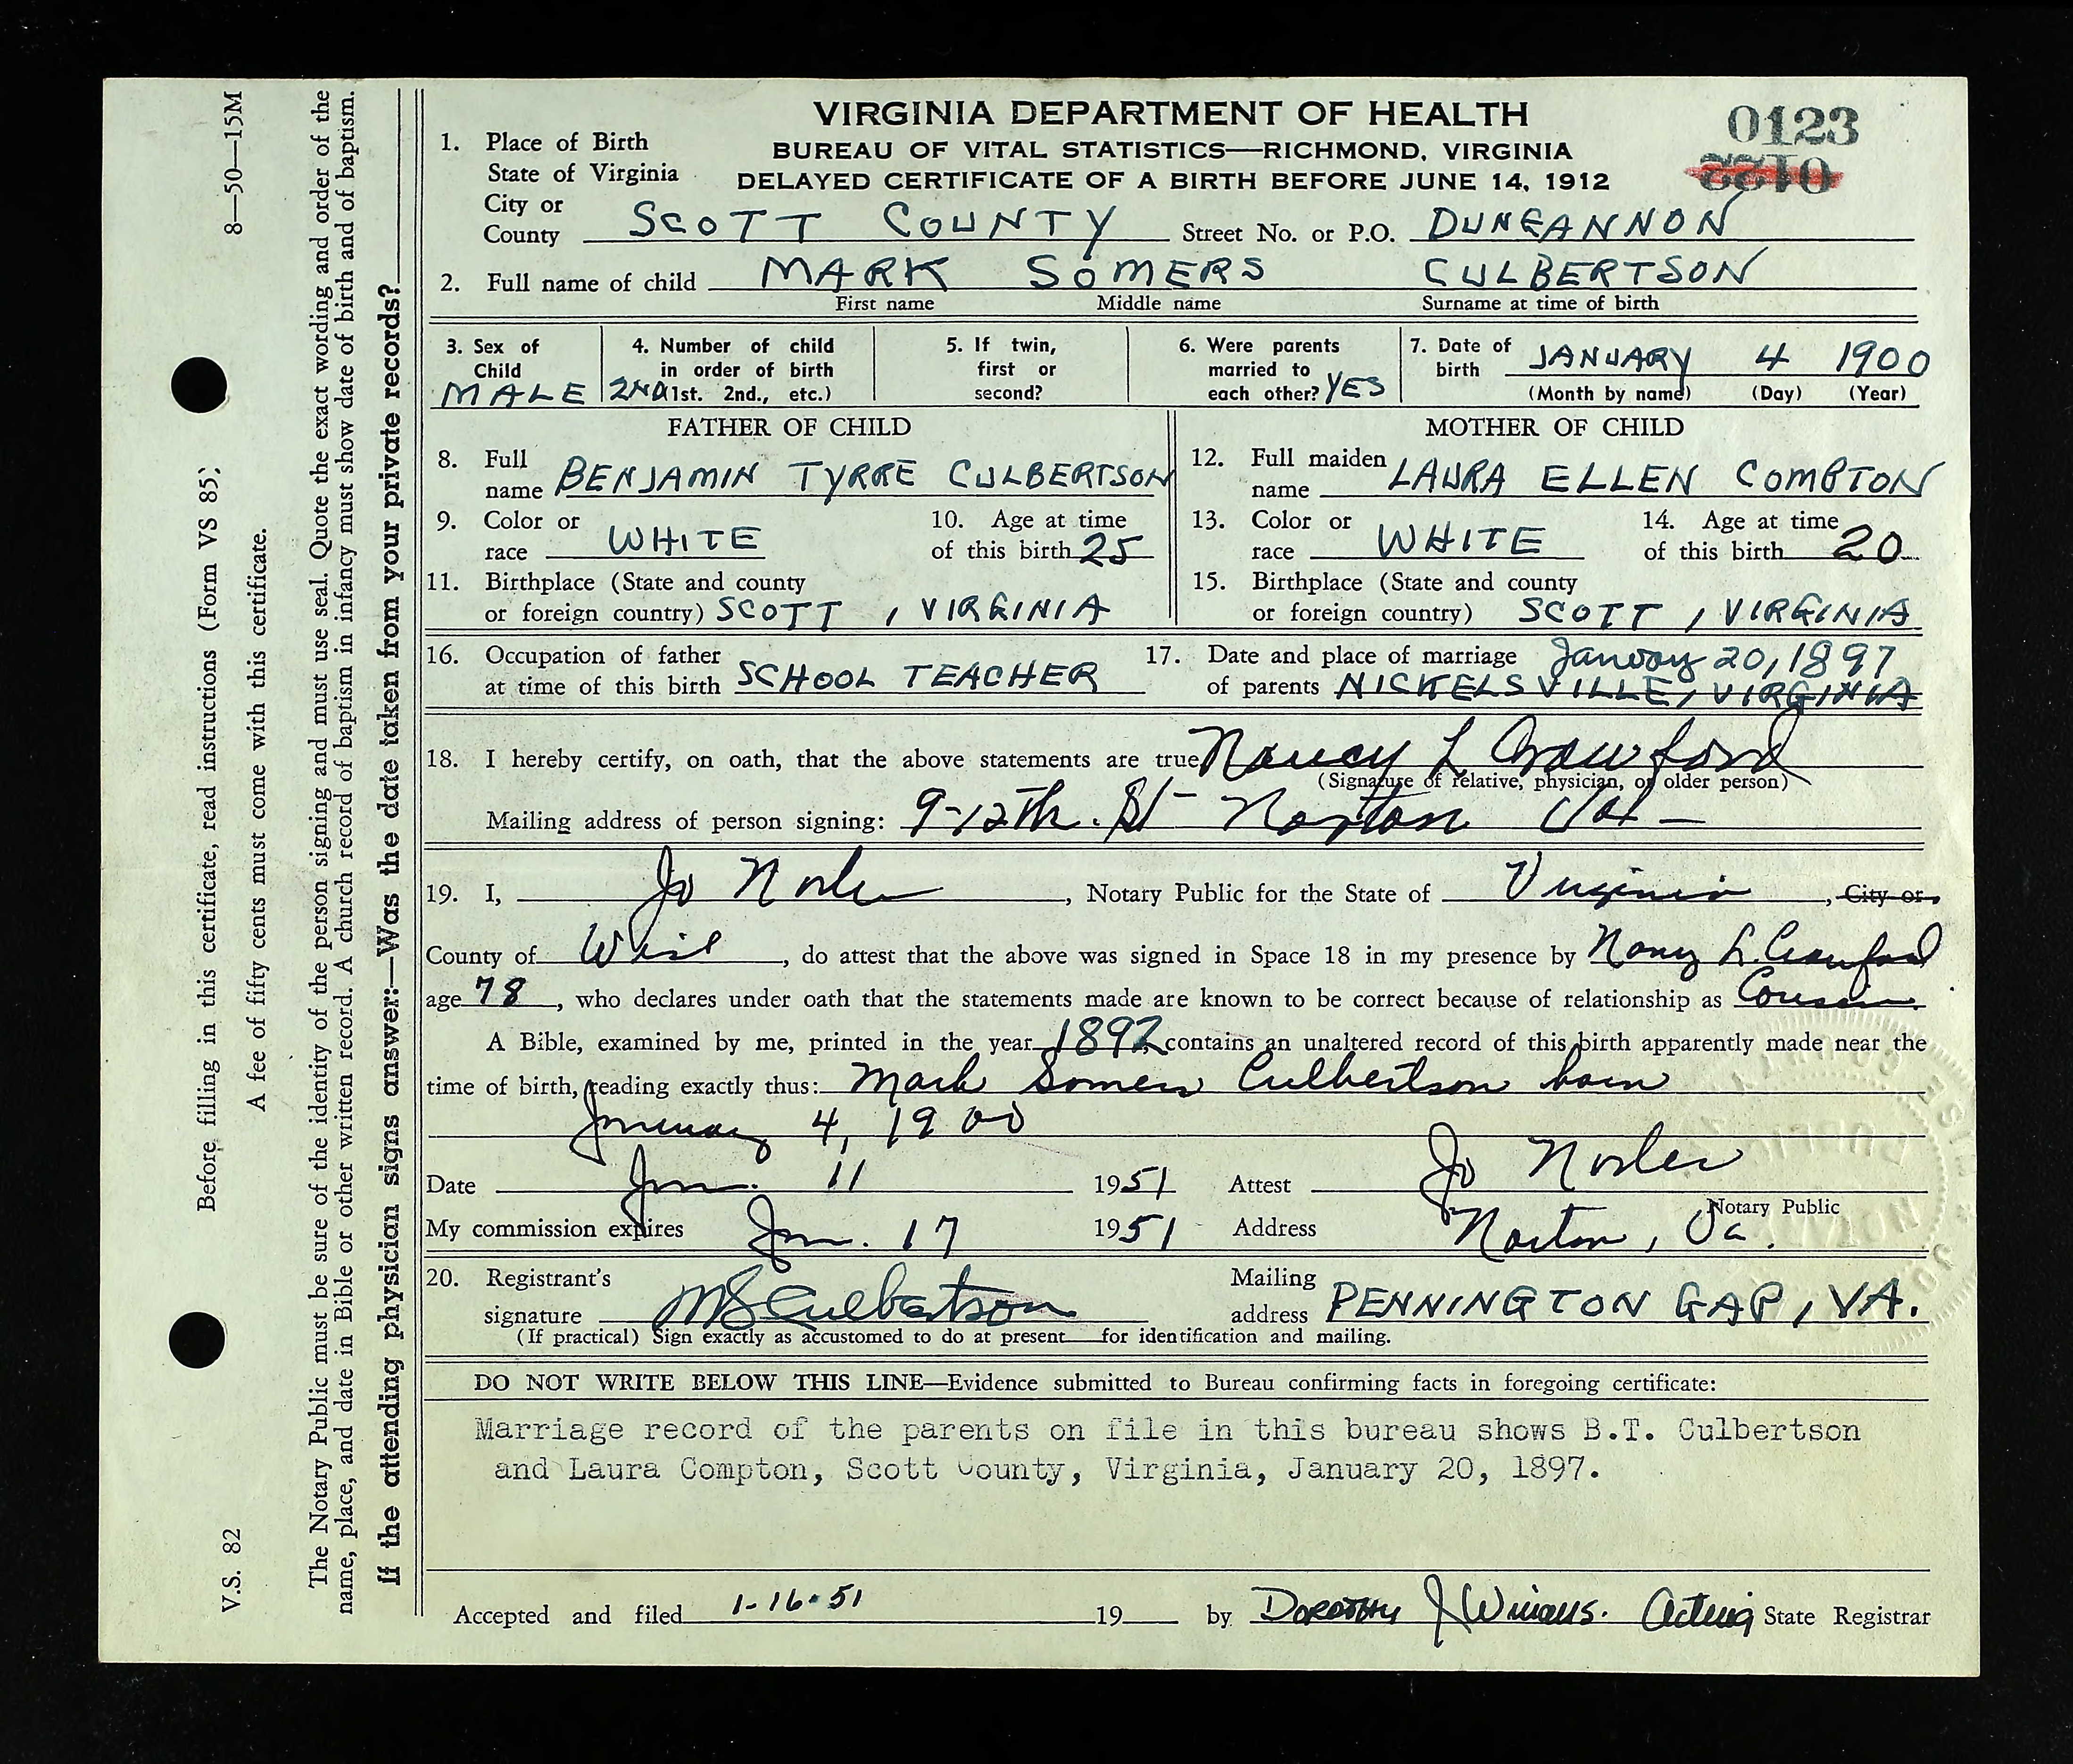 VIRGINIA DEPARTMENT OF HEALTH
BUREAU OF VITAL STATISTICS—RICHMOND, VIRGINIA
DELAYED CERTIFICATE OF A BIRTH BEFORE JUNE 14, 1912
0123
0122
1. Place of Birth
State of Virginia
City or
County SCOTT COUNTY Street No. or P.O. DUNGANNON
2. Full name of child MARK SOMERS CULBERTSON
First name Middle name Surname at time of birth
3. Sex of Child MALE
4. Number of child in order of birth 2ND (1st. 2nd., etc.)
5. If twin, first or second?
6. Were parents married to each other? YES
7. Date of birth JANUARY 4 1900
(Month by name) (Day) (Year)
FATHER OF CHILD
8. Full name BENJAMIN TYRRE CULBERTSON
9. Color or race WHITE 10. Age at time of this birth 25
11. Birthplace (State and county
or foreign country) SCOTT, VIRGINIA
MOTHER OF CHILD
12. Full maiden name LAURA ELLEN COMPTON
13. Color or race WHITE 14. Age at time of this birth 20
15. Birthplace (State and county
or foreign country) SCOTT, VIRGINIA
16. Occupation of father
at time of this birth SCHOOL TEACHER
17. Date and place of marriage January 20, 1897
of parents NICKELSVILLE, VIRGINIA
18. I hereby certify, on oath, that the above statements are true Nancy L Crawford
(Signature of relative, physician, or older person)
Mailing address of person signing: 9-12th. St- Norton Va-
19. I, Jo , Notary Public for the State of Virginia, City or
County of Wise, do attest that the above was signed in Space 18 in my presence by Nancy L. Crawford
age 78, who declares under oath that the statements made are known to be correct because of relationship as Cousin.
A Bible, examined by me, printed in the year 1892 contains an unaltered record of this birth apparently made near the
time of birth, reading exactly thus: Mark Somers Culbertson born
January 4, 1900
Date Jan. 11 1951 Attest Jo
Notary Public
My commission expires Jan. 17 1951 Address Norton, Va.
20. Registrant's
signature MS Culbertson
Mailing
address PENNINGTON GAP, VA.
(If practical) Sign exactly as accustomed to do at present—for identification and mailing.
DO NOT WRITE BELOW THIS LINE—Evidence submitted to Bureau confirming facts in foregoing certificate:
Marriage record of the parents on file in this bureau shows B.T. Culbertson
and Laura Compton, Scott County, Virginia, January 20, 1897.
Accepted and filed 1-16-51 19 by Dorothy J Acting State Registrar
8—50—15M
Before filling in this certificate, read instructions (Form VS 85);
A fee of fifty cents must come with this certificate.
V.S. 82
The Notary Public must be sure of the identity of the person signing and must use seal. Quote the exact wording and order of the
name, place, and date in Bible or other written record. A church record of baptism in infancy must show date of birth and of baptism.
If the attending physician signs answer:—Was the date taken from your private records?